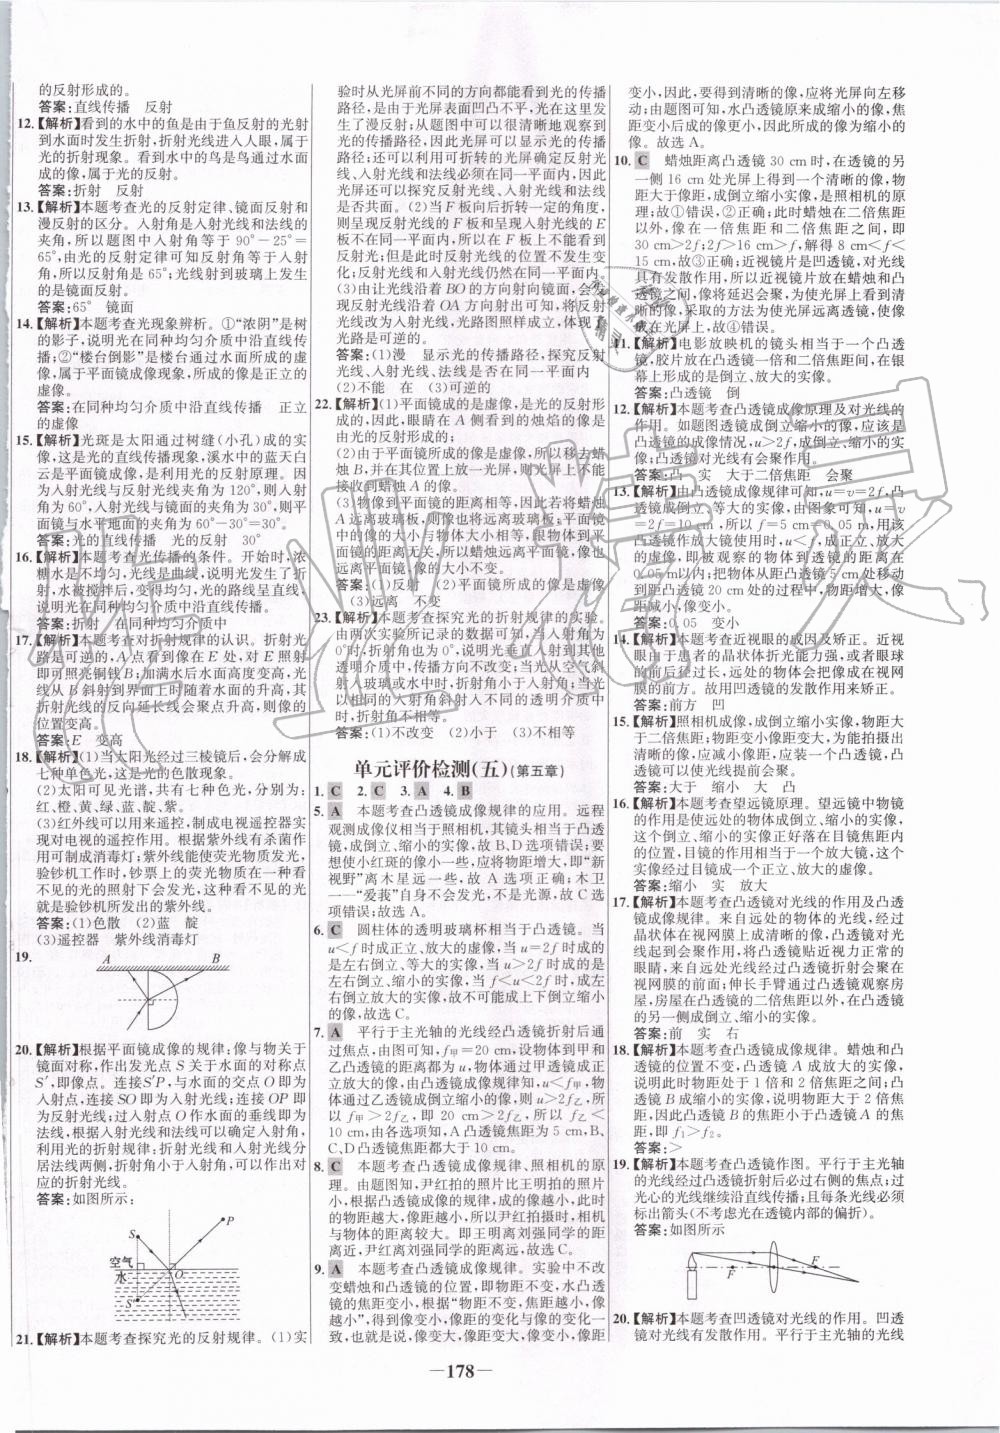 的反射形成的。
答案:直线传播　反射
12.【解析】看到的水中的鱼是由于鱼反射的光射
到水面时发生折射,折射光线进入人眼,属于
光的折射现象。看到水中的鸟是鸟通过水面
成的像,属于光的反射。
答案:折射　反射
13.【解析】本题考查光的反射定律、镜面反射和
漫反射的区分。入射角是入射光线和法线的
夹角,所以题图中入射角等于90°-25°=
65°,由光的反射定律可知反射角等于入射
角,所以反射角是65°;光线射到玻璃上发生
的是镜面反射。
答案:65°　镜面
14.【解析】本题考查光现象辨析。①“浓阴”是树
的影子,说明光在同种均匀介质中沿直线传
播;②“楼台倒影”是楼台通过水面所成的虚
像,属于平面镜成像现象,所成的像是正立的
虚像。
答案:在同种均匀介质中沿直线传播　正立
的虚像
15.【解析】光斑是太阳通过树缝(小孔)成的实
像,这是光的直线传播现象,溪水中的蓝天白
云是平面镜成像,是利用光的反射原理。因
为入射光线与反射光线夹角为120°,则入射
角为60°,入射光线与镜面夹角为30°,则平
面镜与水平地面的夹角为60°-30°=30°。
答案:光的直线传播　光的反射　30°
16.【解析】本题考查光传播的条件。开始时,浓
糖水是不均匀,光线是曲线,说明光发生了折
射,水被搅拌后,变得均匀,光的路线呈直线,
说明光在同种均匀介质中沿直线传播。
答案:折射　在同种均匀介质中
17.【解析】本题考查对折射规律的认识。折射光
路是可逆的,A点看到像在E处,对E照射
即可照亮铜钱B;加满水后水面高度变高,光
线从B斜射到界面上时随着水面的升高,其
折射光线的反向延长线会聚点升高,则像的
位置变高。
答案:E　变高
18.【解析】(1)当太阳光经过三棱镜后,会分解成
七种单色光,这是光的色散现象。
(2)太阳可见光谱,共有七种色光,分别为:
红、橙、黄、绿、蓝、靛、紫。
(3)红外线可以用来遥控,制成电视遥控器实
现对电视的遥控作用。根据紫外线有杀菌作
用可制成消毒灯;紫外线能使荧光物质发光,
验钞机工作时,钞票上的荧光物质在一种看
不见的光的照射下会发光,这种看不见的光
就是验钞机所发出的紫外线。
答案:(1)色散　(2)蓝　靛
(3)遥控器　紫外线消毒灯
19.
A　B
20.【解析】根据平面镜成像的规律:像与物关于
镜面对称,作出发光点S关于水面的对称点
S′,即像点。连接S′P,与水面的交点O即为
入射点,连接SO即为入射光线;连接OP即
为反射光线;过入射点O作水面的垂线即为
法线,根据入射光线和法线可以确定入射角,
利用光的折射规律:折射光线和入射光线分
居法线两侧,折射角小于入射角,可以作出对
应的折射光线。
答案:如图所示:
P
S
空气
水
O
S′
21.【解析】本题考查探究光的反射规律。(1)实
验时从光屏前不同的方向都能看到光的传播
路径,是由于光屏表面凹凸不平,光在这里发
生了漫反射,从题图中可以很清晰地观察到
光的传播路径,所以光屏的作用是显示光的
传播路径,同时利用可折转的光屏确定反射
光线、入射光线和法线必须在同一平面内,因
此光屏还可以探究反射光线、入射光线和法线
是否共面。(2)当F板向后折转一定的角度,
则呈现反射光线的F板和呈现入射光线的E
板不在同一平面内了,所以在F板上不能看到
反射光;但此时反射光线的位置不发生变
化;反射光线和入射光线仍然在同一平面内。
(3)由让光线沿着BO的方向射向镜面,会发
现反射光线沿着OA方向射出可知,将反射
光线改为入射光线,光路图照样成立,体现了
光路是可逆的。
答案:(1)漫　显示光的传播路径,探究反射
光线、入射光线、法线是否在同一平面内
(2)不能　在　(3)可逆的
22.【解析】(1)平面镜成的是虚像,是光的反射形
成的,因此,眼睛在A侧看到的烛焰的像是
由光的反射形成的;
(2)由于平面镜所成的是虚像,所以移去蜡
烛B,并在该位置上放一光屏,则在光屏上不
能承接到蜡烛A的像;
(3)物像到平面镜的距离相等,因此若将蜡烛
A远离玻璃板,则像也将远离玻璃板;平面镜
中的像的大小与物体大小相等,跟物体到平
面镜的距离无关,所以蜡烛远离平面镜,像也
远离平面镜,像的大小不变。
答案:(1)反射　(2)平面镜所成的像是虚像
(3)远离　不变
23.【解析】本题考查探究光的折射规律的实验。
由两次实验所记录的数据可知,当入射角为
0°时,折射角都为0°,说明光垂直入射到不同
透明介质中,传播方向不改变;当光从空气斜
射入玻璃或水中时,折射角小于入射角;当光
以相同的入射角斜射入不同的透明介质中
时,折射角不相等。
答案:(1)不改变　(2)小于　(3)不相等
单元评价检测(五)(第五章)
1. C　2. C　3. A　4. B
5. A　本题考查凸透镜成像规律的应用。远程
观测成像仪相当于照相机,其镜头相当于凸透
镜,成倒立、缩小的实像,故B、D选项错误;要
想使小红斑的像小一些,应将物距增大,即“新
视野”离木星远一些,故A选项正确;木卫
一——“爱我”自身不会发光,不是光源,故C选
项错误;故选A。
6. C　圆柱体的透明玻璃杯相当于凸透镜。当
u<f时成正立、放大的虚像,当u=2f时成的
是左右倒立、等大的实像,当u>2f时成的是
左右倒立、缩小的实像,当f<u<2f时,成左
右倒立放大的实像,故不可能成上下倒立缩小
的像,故选C。
7. A　平行于主光轴的光线经凸透镜折射后通
过焦点,由图可知,f甲=20 cm,设物体到甲和
乙凸透镜的距离为u,物体通过甲透镜成正
立放大的像,由凸透镜成像规律知,u<f甲,
物体通过乙透镜成倒立缩小的像,则u>2f乙,所
以f甲>2f乙,即20 cm>2f乙,所以f乙<
10 cm,由各选项知,A凸透镜焦距为5 cm,B、
C、D凸透镜焦距都大于10 cm。
8. C　本题考查凸透镜成像规律、照相机的原
理。由题图知,尹红拍的照片比王明拍的照片
小,根据凸透镜成像的规律,成的像越小,此时
的物距越大,像距越小,所以尹红拍摄时,相机
与物体的距离较大。即王明离刘强同学的距
离近,尹红离刘强同学的距离远,故选C。
9. A　本题考查凸透镜成像规律。实验中不改
变蜡烛和凸透镜的位置,即物距不变,水凸透
镜的焦距变小,根据“物距不变,焦距越小,像
越小”的规律,像距的变化与像的变化一
致,也就是说,像变大,像距变大,像变小,像距
变小,因此,要得到清晰的像,应将光屏向左移
动;由题图可知,水凸透镜原来成缩小的像,焦
距变小后成的像更小,因此,像仍为缩小的
像。故选A。
10. C　蜡烛距离凸透镜30 cm时,在透镜的另
一侧16 cm处光屏上得到一个清晰的像,因
物距大于像距,成倒立缩小实像,是照相机的
原理;故①错误,②正确;此时蜡烛在二倍焦距
以外,像在一倍焦距和二倍焦距之间,即
30 cm>2f;2f>16 cm>f,解得8 cm<f<
15 cm,故③正确;近视镜片是凹透镜,对光线
具有发散作用,所以近视镜片放在蜡烛和凸
透镜之间,像将延迟会聚;为了使光屏看到清
晰的像,采取的方法为使光屏远离透镜,使像
成在光屏上,故④错误。
11.【解析】电影放映机的镜头相当于一个凸透
镜,胶片放在凸透镜一倍和二倍焦距间,在银
幕上形成的是倒立、放大的实像。
答案:凸透镜　倒
12.【解析】本题考查凸透镜成像原理及对光线的
作用。如题图透镜成倒立缩小的像,应该是
凸透镜的成像情况,u>2f,成倒立、缩小的实
像;凸透镜对光线有会聚作用。
答案:凸　实　大于二倍焦距　会聚
13.【解析】由凸透镜成像规律可知,u=v=2f,凸
透镜成倒立、等大的实像,由图象可知,u=v
=2f=10 cm,所以f=5 cm=0.05 m,用该
凸透镜作放大镜使用时,u<f,成正立、放大
的虚像,即被观察的物体到透镜的距离在
0.05 m以内;把物体从距凸透镜5 cm处移动
到距凸透镜20 cm处的过程中,物距增大,像
距减小,像变小。
答案:0.05　变小
14.【解析】本题考查近视眼的成因及矫正。近视
眼是由于患者的晶状体折光能力强,或者眼球
的前后径过长,远处物体的像成在视网
膜的前方。故改用凹透镜的发散作用来矫正。
答案:前方　凹
15.【解析】照相机成像,成倒立缩小实像,物距大
于二倍焦距;物距变小,像距变大,为能拍摄出
清晰的像,应减小像距,应装入一个凸透镜。
答案:大于　缩小　大　凸
16.【解析】本题考查望远镜原理。望远镜中物镜
的作用是使远处的物体成倒立、缩小的实像,
这个倒立、缩小的实像正好落在目镜焦距内
的位置,目镜的作用相当于一个放大镜,把这
个实像经过目镜成一个正立、放大的虚像。
答案:缩小　实　放大
17.【解析】本题考查透镜对光线的作用及凸透
镜成像规律。来自远处的物体的光线,经过
晶状体在视网膜上成像,凸透镜对光线起到
会聚作用,将凸透镜贴近视力正常的
眼睛,来自远处光线经过凸透镜折射会聚在
视网膜的前面;伸长手臂通过凸透镜观察房
屋,房屋在凸透镜的二倍焦距以外,在凸透镜
的另一侧成倒立、缩小的实像。
答案:前　实　右
18.【解析】本题考查凸透镜成像规律。蜡烛和凸
透镜的位置不变,凸透镜A成放大的实像,
说明此时物距处于1倍和2倍焦距之间;凸
透镜B成缩小的实像,说明物距大于2倍焦
距,因此凸透镜B的焦距小于凸透镜A的焦
距,即f₁>f₂。
答案:>
19.【解析】本题考查凸透镜作图。平行于主光轴
的光线经过凸透镜折射后必过右侧的焦点;过
光心的光线继续沿直线传播;且每条光线必须
标出箭头(不考虑光在透镜内部的偏折)。
答案:如图所示
F　F
20.【解析】本题考查凹透镜对光线的作用。凹透
镜对光线有发散作用。平行于主光轴的光线
—178—